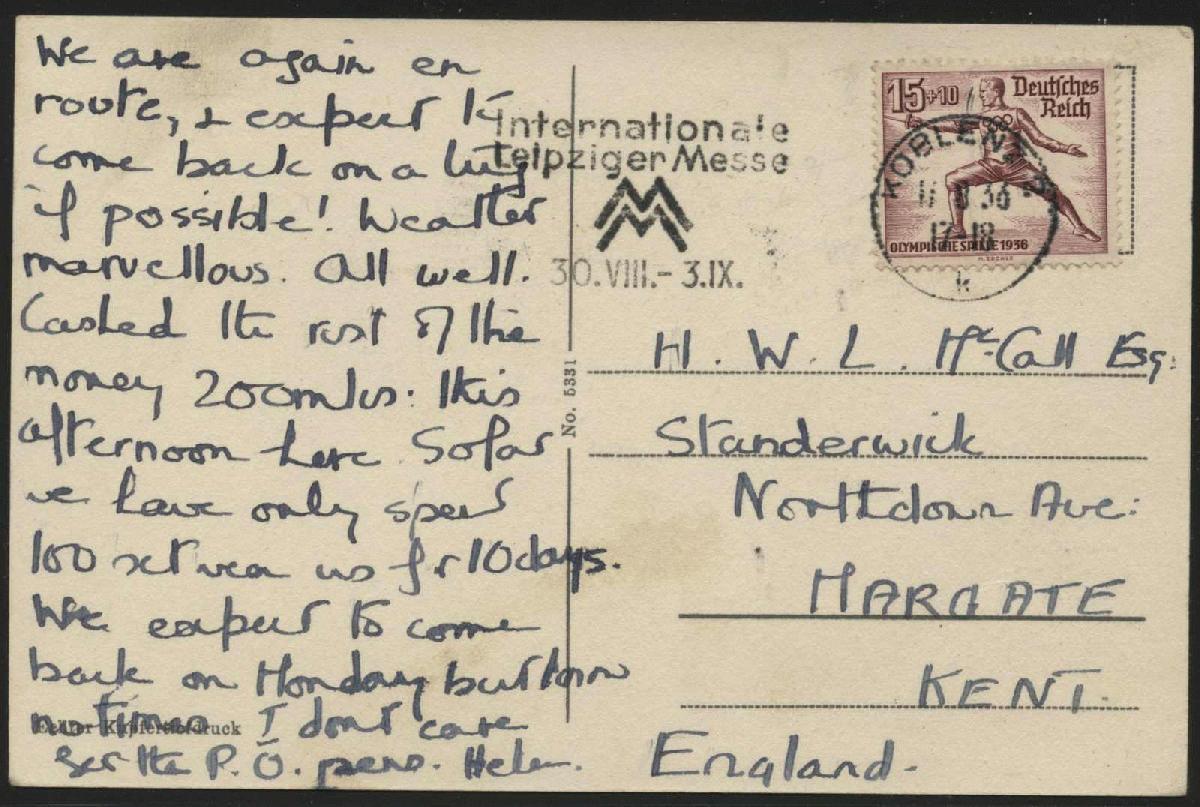 We are again en
route, & expect to
come back on a tug
if possible! Weather
marvellous. All well.
Cashed the rest of the
money 200mks. this
afternoon here. So far
we have only spent
100 between us for 10 days.
We expect to come
back on Monday but
no times I dont care
for the P.O. pens. Helen.
Echter Kupfertiefdruck
No. 5331
Internationale
Leipziger Messe
30.VIII.- 3.IX.
15+10 Deutsches
Reich
OLYMPISCHE SPIELE 1936
KOBLENZ
36
17-18
k
H. W. L. McCall Esq:
Standerwick
Northdown Ave:
MARGATE
KENT.
England.